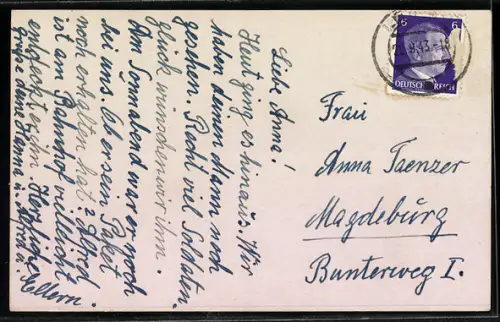 Liebe Anna!
Heut ging es hinaus. Wir
haben deinen Mann noch
gesehen. Recht viel Soldaten-
glück wünschen wir ihm.
Am Sonnabend war er noch
bei uns. Ob er sein Paket
noch erhalten hat? Alfred
ist am Bahnhof vielleicht
er ihm. Herzliche
Grüße Anna u. Alfred u.
Eltern.
6 6
DEUTSCHES REICH
43
Frau
Anna Taenzer
Magdeburg
Bunterweg I.